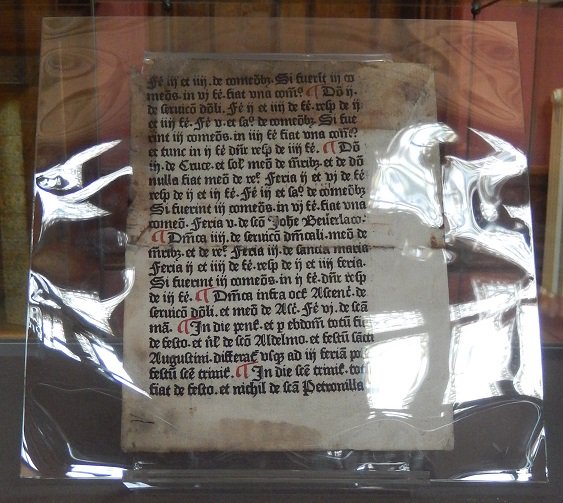 Fē iij et iiij. de comeōbꝫ. Si fuerit iij co
meōs. in vj fē. fiat vna comō. ¶ Dō ij.
de seruicō dōli. Fē ij et iij de fē. resp̄ de ij
et iij fē. Fē v. et saō. de comeōbꝫ. Si fue
rint iij comeōs. in iiij fē fiat vna comō
et tunc in ij fē dn̄r resp̄ de iij fē. ¶ Dō
iij. de Cruce. et sol' meō de mr̄ibꝫ. et de dō
nulla fiat meō de re'. Feria ij et vj de fē.
resp̄ de ij et iij fē. Fē iij et saō de comeōbꝫ
Si fuerint iij comeōs. in vj fē. fiat vna
comeō. Feria v. de scō Johe Beuerlaco.
¶ Dm̄ca iiij. de seruicō dm̄cali. meō de
mr̄ibꝫ. et de re'. Feria iij. de sancta maria
Feria ij et iiij de fē. resp̄ de ij et iij feria.
Si fuerint iij comeōs. in ij fē. dn̄r resp̄
de iij fē. ¶ Dm̄ca infra oct' Ascenc'. de
seruicō dōli. et meō de Asc'. Fē vj. de scā
mā. ¶ In die pent'. et p̄ ebdom̄ totū fiat
de festo. et n̄l' de scō Aldelmo. et festū sāti
Augustini. differat' vsqꝫ ad iij feriā po
festū scē trinit'. ¶ In die scē trinit'. totū
fiat de festo. et nichil de scā Petronilla